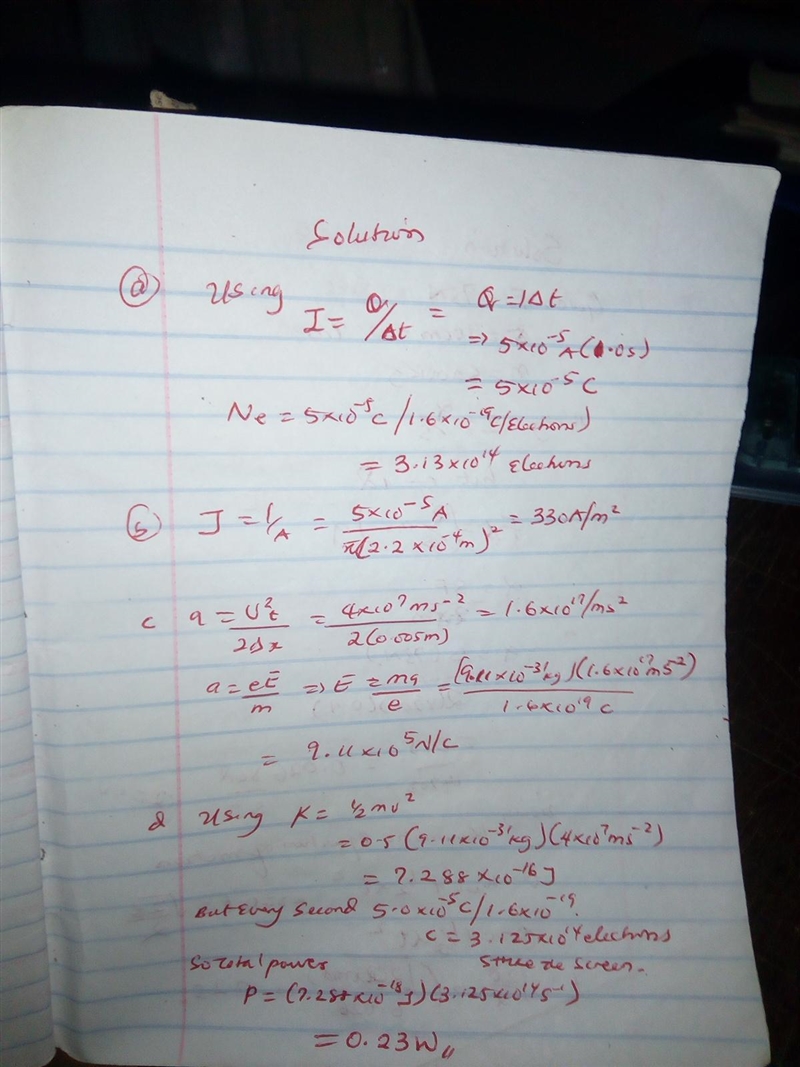 Solution
(a) Using I = Q/Δt = Q = IΔt
⇒ 5×10⁻⁵A(1.0s)
= 5×10⁻⁵C
Ne = 5×10⁻⁵C/1.6×10⁻¹⁹C/Electrons)
= 3.13×10¹⁴ Electrons
(b) J = I/A = 5×10⁻⁵A / π(2.2×10⁻⁴m)² = 330A/m²
c a = U²t / 2Δx = 4×10⁷ms⁻² / 2(0.005m) = 1.6×10¹⁷/ms²
a = eE/m ⇒ E = ma/e = (9.11×10⁻³¹kg)(1.6×10¹⁷ms²) / 1.6×10¹⁹C
= 9.11×10⁵N/C
d Using K = ½mv²
= 0.5(9.11×10⁻³¹kg)(4×10⁷ms⁻²)
= 7.288×10⁻¹⁶J
But Every Second 5.0×10⁻⁵C/1.6×10⁻¹⁹.
C = 3.125×10¹⁴ electrons
So total power strike the screen.
P = (7.288×10⁻¹⁸J)(3.125×10¹⁴s⁻¹)
= 0.23W,,